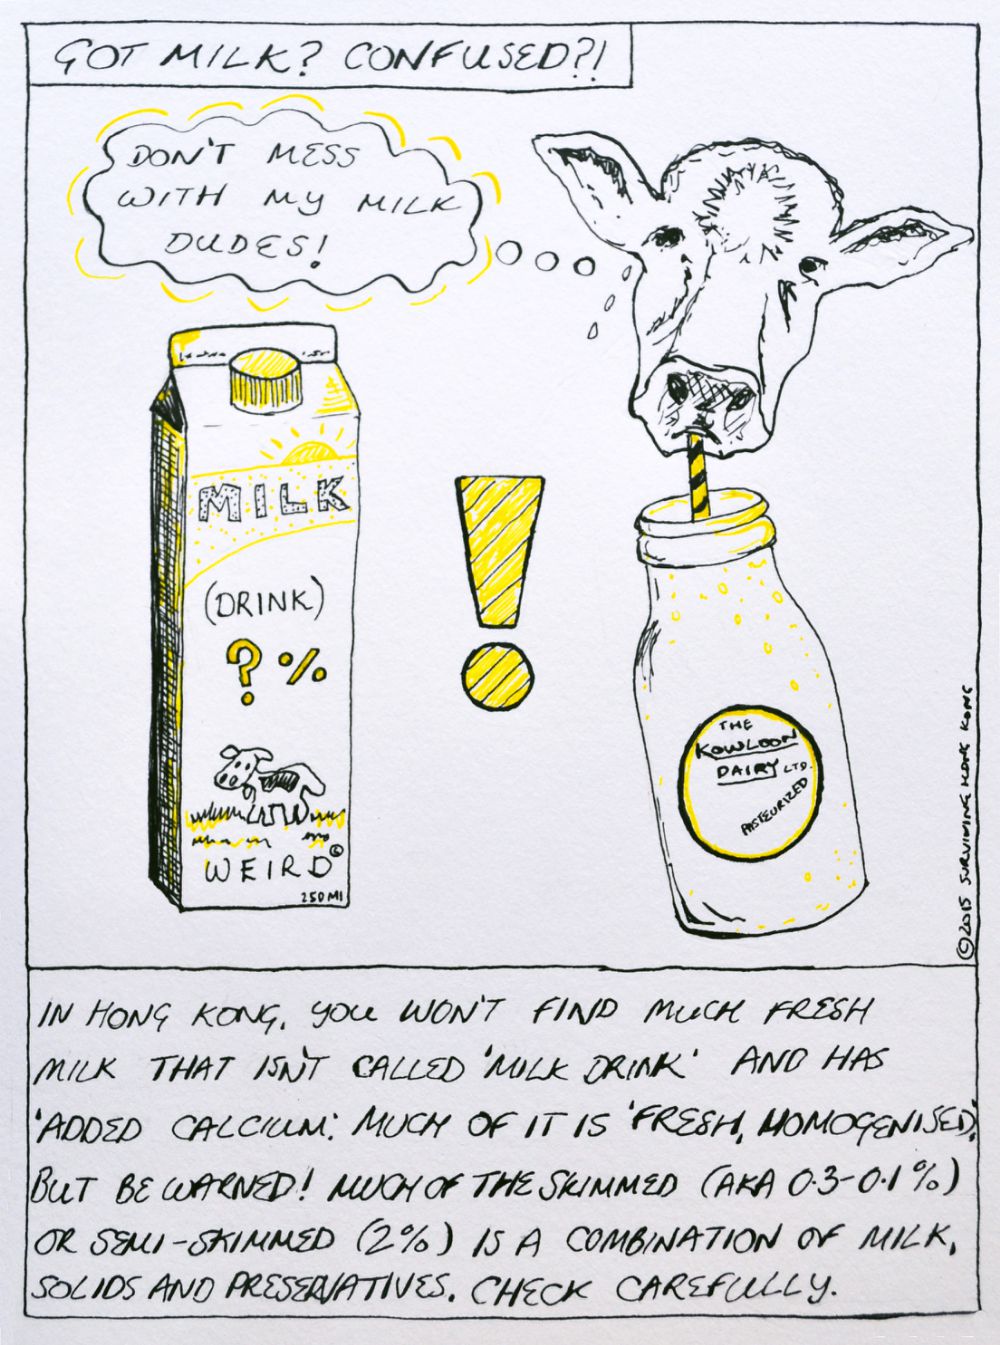 GOT MILK? CONFUSED?!
DON'T MESS
WITH MY MILK
DUDES!
MILK
(DRINK)
? %
WEIRD©
250Ml
!
THE
KOWLOON
DAIRY LTD.
PASTEURIZED
©2015 SURVIVING HONG KONG
IN HONG KONG, YOU WON'T FIND MUCH FRESH
MILK THAT ISN'T CALLED 'MILK DRINK' AND HAS
'ADDED CALCIUM'. MUCH OF IT IS 'FRESH, HOMOGENISED'.
BUT BE WARNED! MUCH OF THE SKIMMED (AKA 0.3-0.1%)
OR SEMI-SKIMMED (2%) IS A COMBINATION OF MILK,
SOLIDS AND PRESERVATIVES. CHECK CAREFULLY.